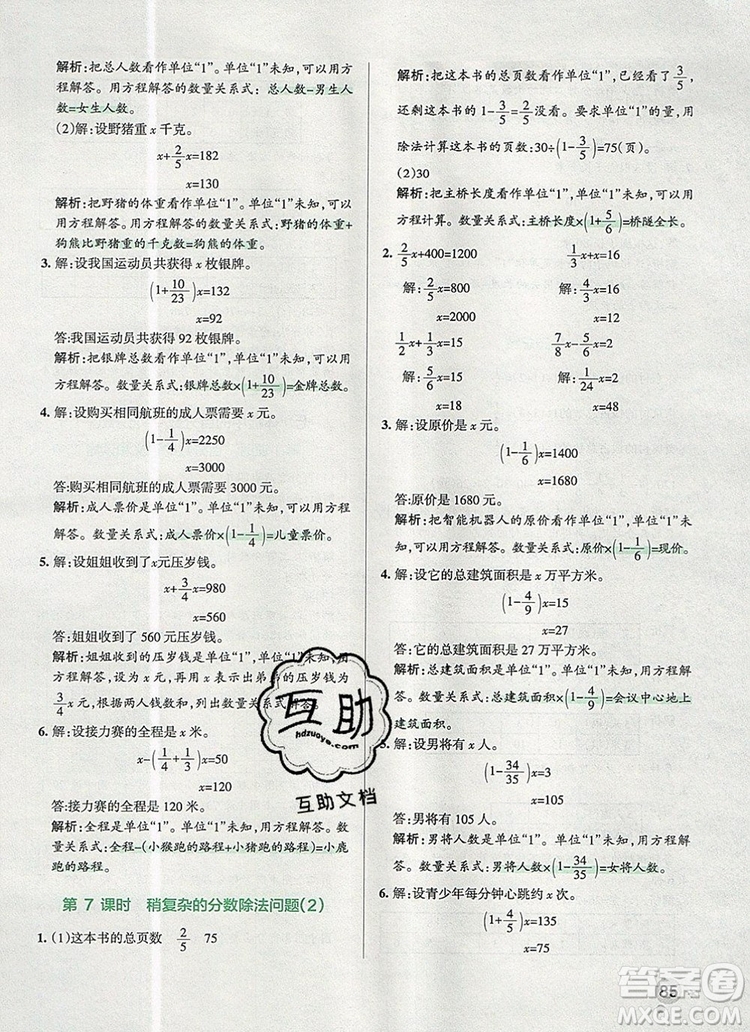 解析:把总人数看作单位“1”。单位“1”未知,可以用方
程解答。用方程解答的数量关系式:总人数-男生人
数=女生人数
(2)解:设野猪重 x 千克。
x+2/5x=182
x=130
解析:把野猪的体重看作单位“1”。单位“1”未知,可以
用方程解答。用方程解答的数量关系式:野猪的体重+
狗熊比野猪重的千克数=狗熊的体重。
3. 解:设我国运动员共获得 x 枚银牌。
(1+10/23)x=132
x=92
答:我国运动员共获得 92 枚银牌。
解析:把银牌总数看作单位“1”,单位“1”未知,可以用
方程解答。数量关系式:银牌总数×(1+10/23)=金牌总数。
4. 解:设购买相同航班的成人票需要 x 元。
(1-1/4)x=2250
x=3000
答:购买相同航班的成人票需要 3000 元。
解析:成人票价是单位“1”。单位“1”未知,可以用方程
解答。数量关系式:成人票价×(1-1/4)=儿童票价。
5. 解:设姐姐收到了x元压岁钱。
x+3/4x=980
x=560
答:姐姐收到了 560 元压岁钱。
解析:姐姐收到的压岁钱是单位“1”,单位“1”未知,用
方程解答,设为 x 元,再用 x 表示出弟弟的压岁钱为
3/4x元,根据两人钱数和,列出数量关系式解答。
6. 解:设接力赛的全程是 x 米。
x-(1/4+1/3)x=50
x=120
答:接力赛的全程是 120 米。
解析:全程是单位“1”。单位“1”未知,用方程解答。数量
关系式:全程-(小猴跑的路程+小猪跑的路程)=小鹿
跑的路程。
第 7 课时 稍复杂的分数除法问题(2)
1. (1)这本书的总页数 2/5 75
解析:把这本书的总页数看作单位“1”,已经看了3/5,
还剩这本书的 1-3/5=2/5没看。要求单位“1”的量,用
除法计算这本书的页数:30÷(1-3/5)=75(页)。
(2)30
解析:把主桥长度看作单位“1”,单位“1”未知,可以用
方程计算。数量关系式:主桥长度×(1+5/6)=桥隧全长。
2. 2/5x+400=1200 1/3x+x=16
解:2/5x=800 解:4/3x=16
x=2000 x=12
1/2x+1/3x=15 7/8x-5/6x=2
解:5/6x=15 解:1/24x=2
x=18 x=48
3. 解:设原价是 x 元。
(1-1/6)x=1400
x=1680
答:原价是 1680 元。
解析:把智能机器人的原价看作单位“1”,单位“1”未
知,可以用方程解答。数量关系式:原价×(1-1/6)=现价。
4. 解:设它的总建筑面积是 x 万平方米。
(1-4/9)x=15
x=27
答:它的总建筑面积是 27 万平方米。
解析:总建筑面积是单位“1”。单位“1”未知,用方程解
答。数量关系式:总建筑面积×(1-4/9)=会议中心地上
建筑面积。
5. 解:设男将有 x 人。
(1-34/35)x=3
x=105
答:男将有 105 人。
解析:男将人数是单位“1”。单位“1”未知,用方程解
答。数量关系式:男将人数×(1-34/35)=女将人数。
6. 解:设青少年每分钟心跳约 x 次。
(1+4/5)x=135
x=75
互助
hdzuoye.com
互助文档
85
答案圈
MXQE.COM